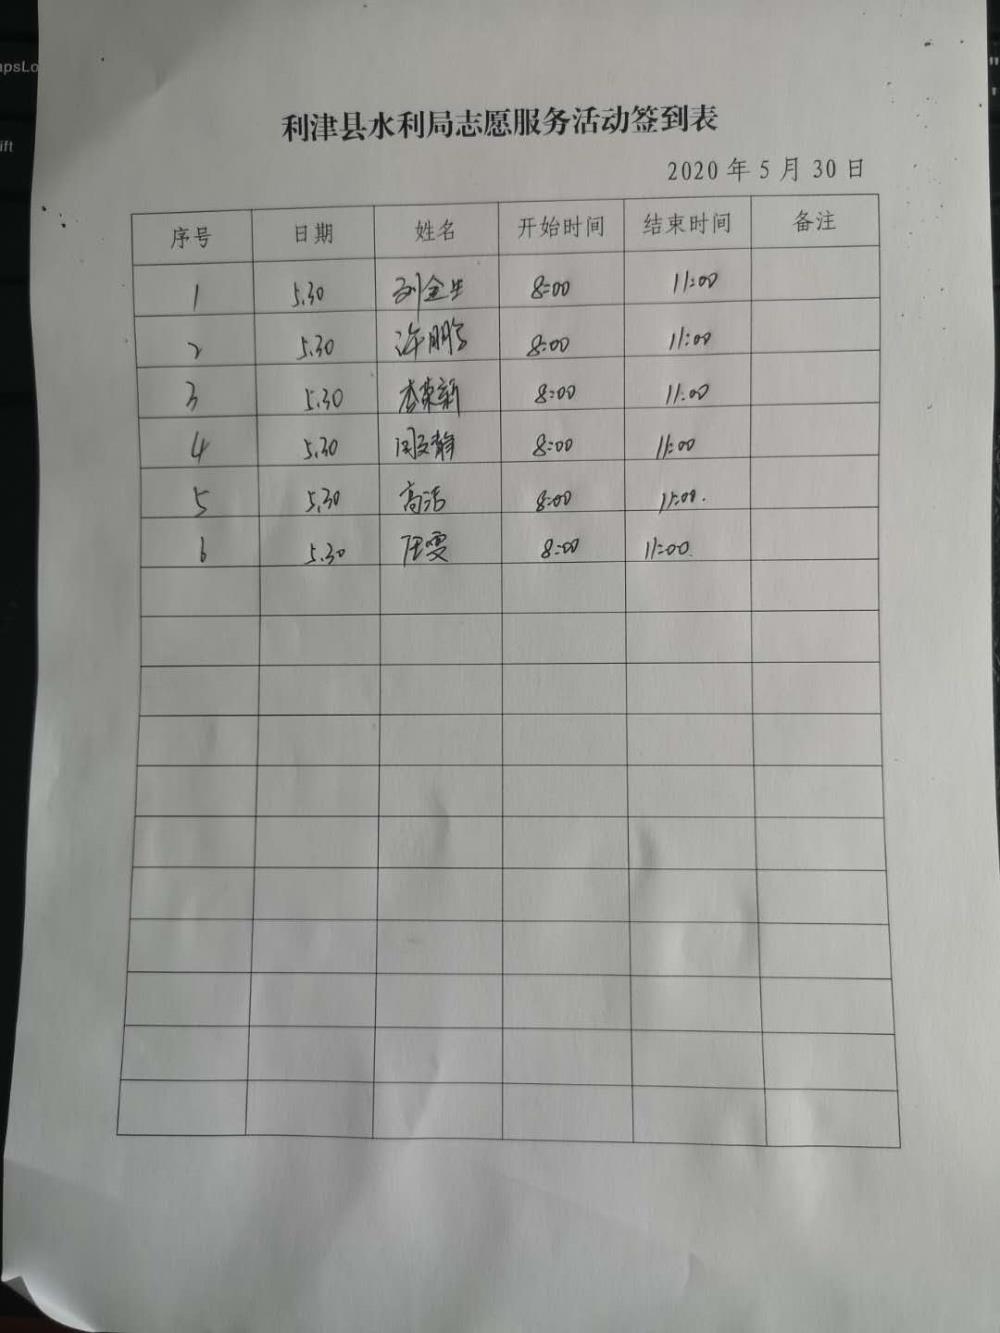 apsLo
ift
利津县水利局志愿服务活动签到表
2020年5月30日
序号 日期 姓名 开始时间 结束时间 备注
1 5.30 刘金生 8:00 11:00
2 5.30 许鹏 8:00 11:00
3 5.30 李荣新 8:00 11:00
4 5.30 周文静 8:00 11:00
5 5.30 高洁 8:00 11:00.
6 5.30 任雯 8:00 11:00.